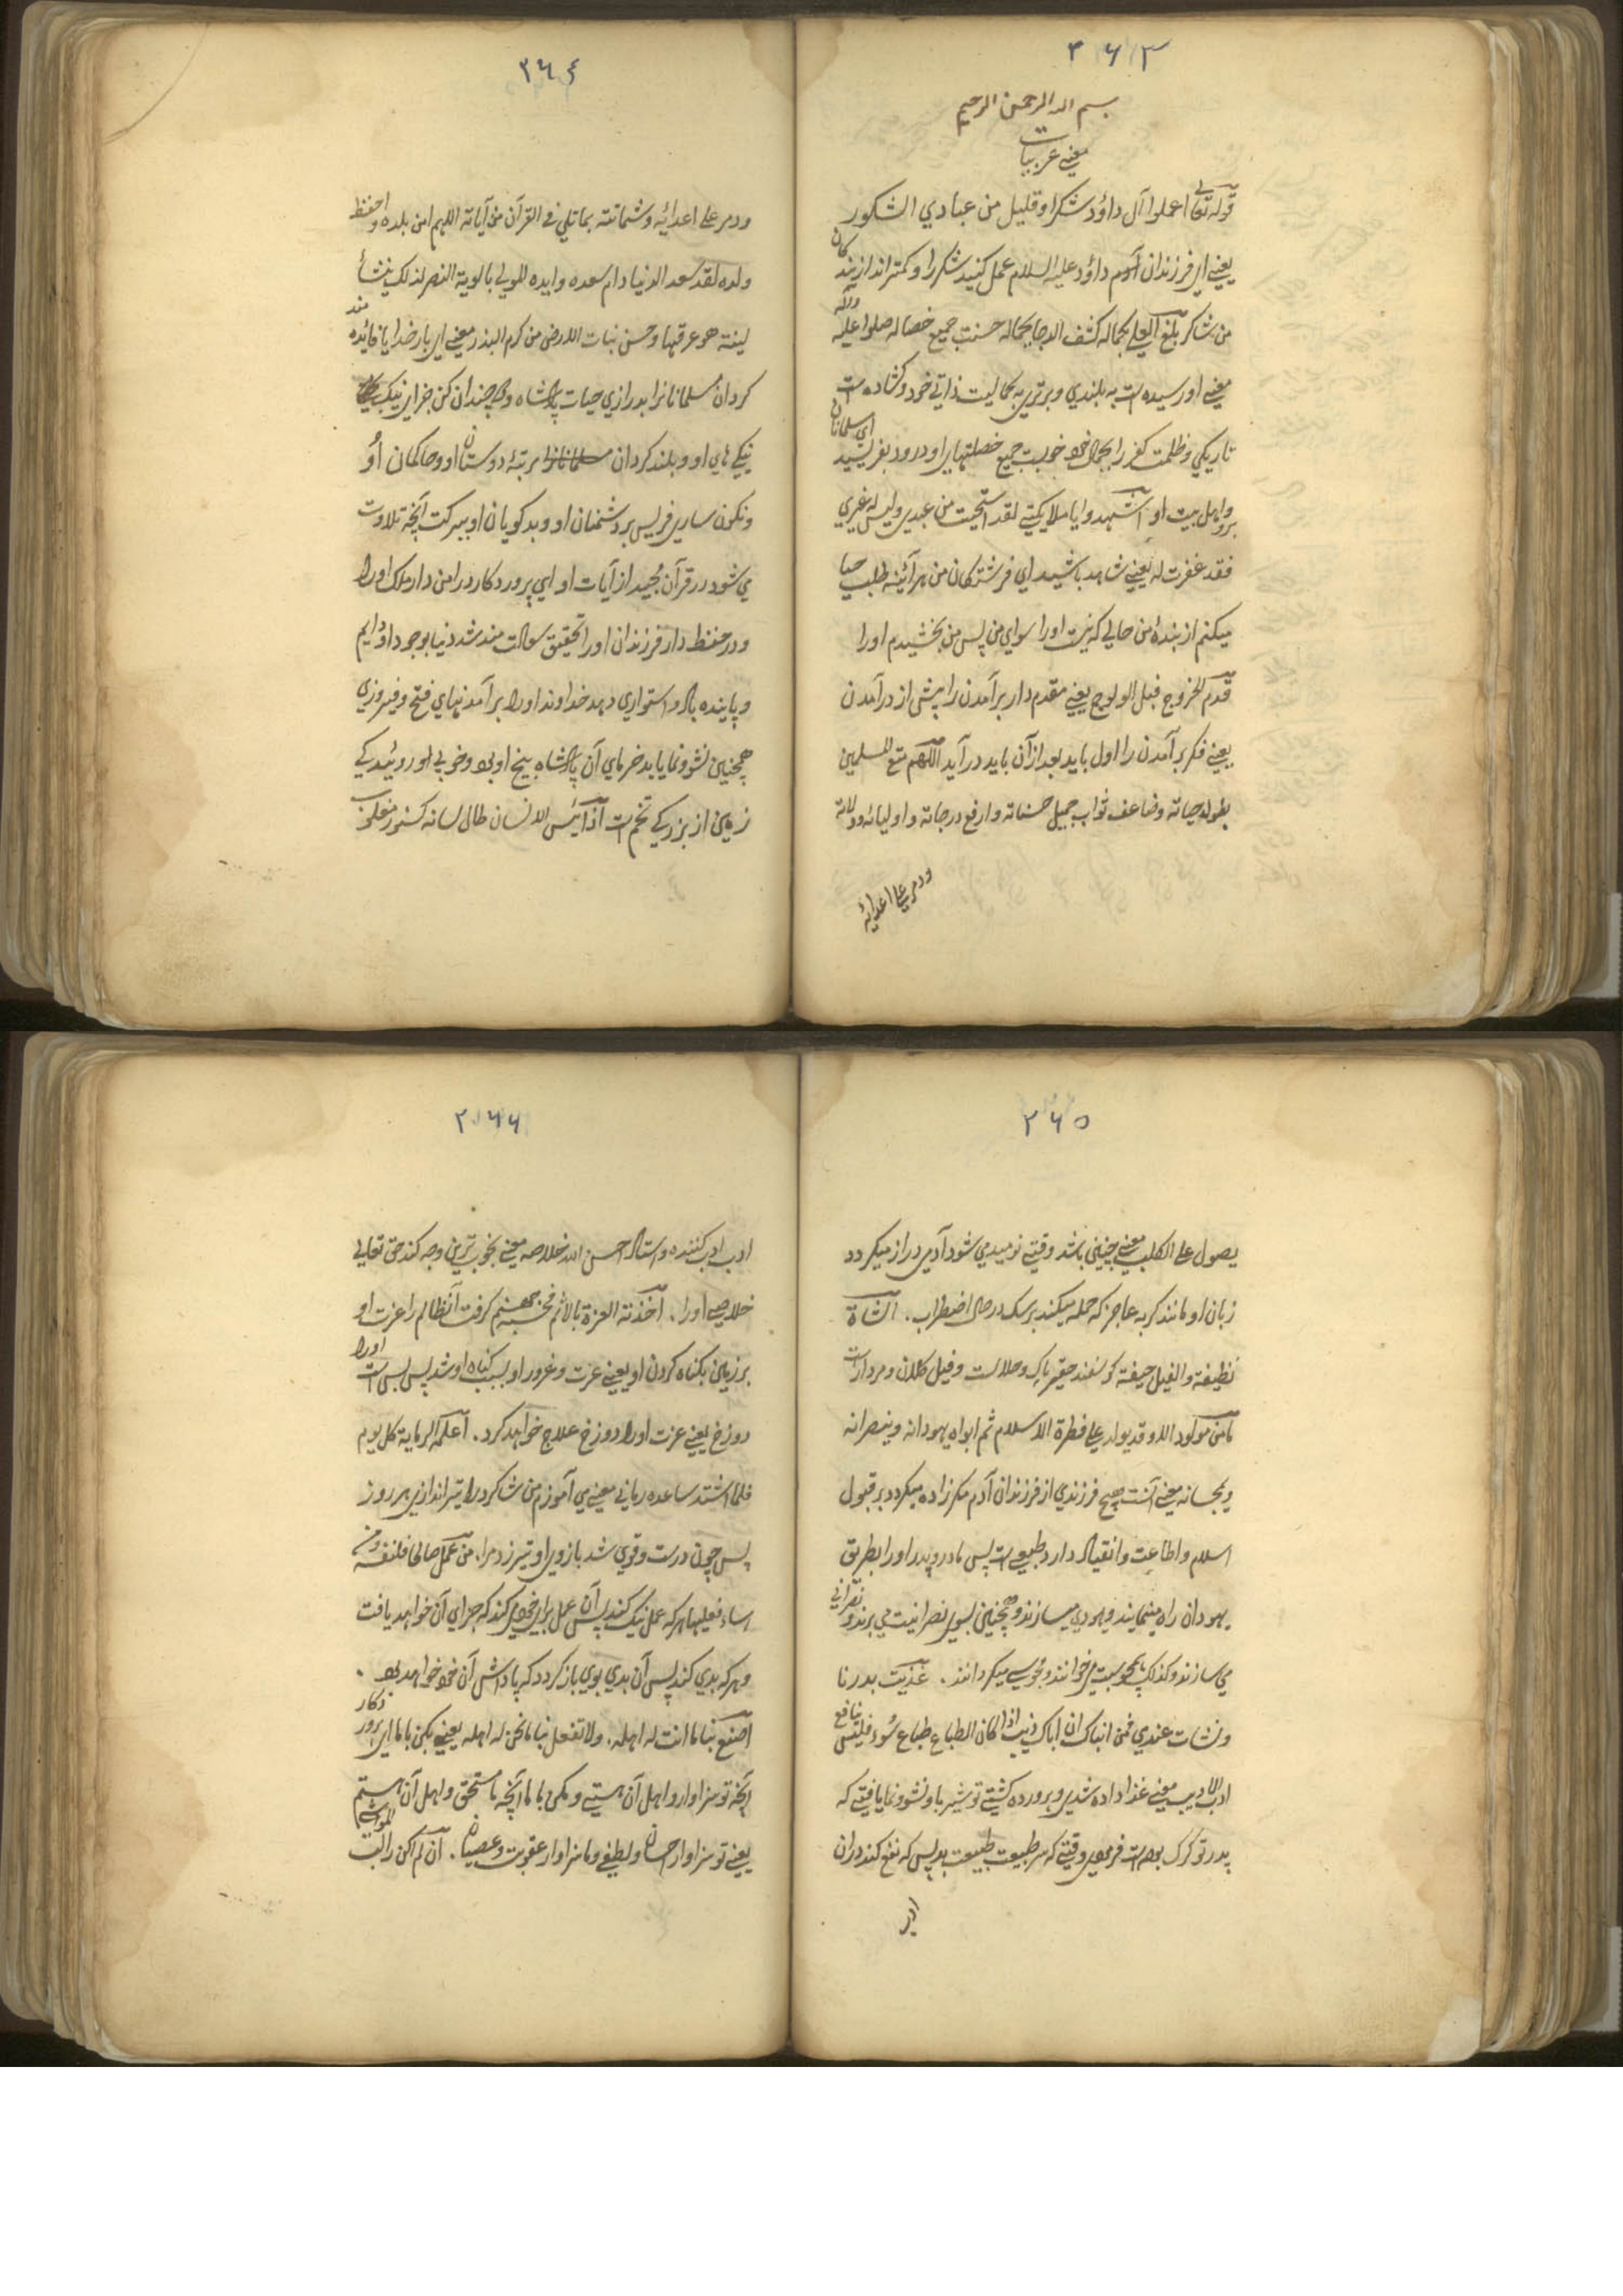 ۲۶۳
بسم الله الرحمن الرحیم
معنے عربیات
قوله تعالی اعملوا آل داؤد شکرا و قلیل من عبادي الشکور
یعنے اي فرزندان آدم داؤد علیه السلام عمل کنید شکر را و کمتر اند از بندکان
من شاکر بلغ العلے بکماله کشف الدجا بجماله حسنت جمیع خصاله صلوا علیه وآله
معنے او رسیده است به بلندي و برتري به کمالیت ذاتي خود و کشاده است
تاریکي و ظلمت کفر را بجمال خود خوبست جمیع خصلتهاي او درود بفرستید اي مسلمانان
برو و اهل بیت او اشهدوا یا ملایکتے لقد استحیت من عبدي و لیس له غیري
فقد غفرت له یعنے شاهد باشید اي فرشتکان من هرآئینه طلب حیا
میکنم از بندهٔ من حالي که نیست اورا سواي من پس من بخشیدم اورا
قدم الخروج قبل الولوج یعنے مقدم دار برآمدن را پیش از درآمدن
یعنے فکر برآمدن را اول باید بعد از آن باید درآید اللهم متع المسلمین
بطول حیاته و ضاعف ثواب جمیل حسناته وارفع درجاته و اولیائه و ولاته
ودمر علے اعدائه
۲۶٤
ودمر علے اعدائه و شماتته بما تلي في القرآن من آیاته اللهم امن بلده و احفظ
ولده لقد سعد الدنیا دام سعده وایده المولے بالویة النصر لذلک ینشأ
لینة هو عرقها و حسن نبات الارض من کرم البذر معنے اي بار خدایا فائده مند
کردان مسلمانانرا بدرازي حیات پادشاه و دو چندان کن جزاي نیک
نیکے هاي او و بلند کردان مسلمانانرا مرتبهٔ دوستان او و حاکمان او
و نکون ساري فریس بر دشمنان او و بدکویان او ببرکت آنچه تلاوت
مي شود در قرآن مجید از آیات او اي پروردکار در امن دار ملک اورا
و در حفظ دار فرزندان اورا تحقیق سعادت مند شد دنیا بوجود او دایم
و پاینده باد و استواري دهد خداوند اورا برآمدنهاي فتح و فیروزي
همچنین نشو و نما یابد خرماي آن پادشاه بیخ او بود و خوبي او روئیدکے
زمین از بزرکے تخم است اذا یئس الانسان طال لسانه کسنور مغلوب
۲۶۵
یصول علے الکلب معنے چنین باشد وقتے نومید مي شود آدمي دراز میکردد
زبان او مانند کربه عاجز که حمله میکند برسک درحال اضطراب . الشاة
نظیفة والفیل جیفة کوسفند حقیر پاک و حلالست و فیل کلان و مردار است
ما من مولود الا و قد یولد علے فطرة الاسلام ثم ابواه یهودانه و ینصرانه
و یمجسانه معنے آنست هیچ فرزندي از فرزندان آدم مکر زاده میکردد بر قبول
اسلام و اطاعت و انقیاد دارد طبیعي است پس مادر و پدر اورا بطریق
یهودان راه مینمایند و یهودي میسازند و همچنین بسوي نصرانیت مي برند و نصراني
مي سازند و کذلک بمجوسیت میخوانند و مجوسے میکردانند . غذیت بدرنا
و نشات عندي فمن انباک ان اباک ذیب اذا کان الطباع طباع سوء فلیس بنافع
ادب الادیب معنے غذا داده شدي و پرورده کشتے تو بشیر ما و نشو و نما یافتے که
پدر تو کرک بوده است فرمودي وقتے که سرطبیعت طبیعت بد پس که نفع کند دران
اد
۲۶۶
ادب ادب کننده و استاد احسن الله خلاصه معنے بخوب ترین وجه کند حق تعالے
خلاصے اورا . اخذته العزة بالاثم فحسبه جهنم کرفت آن ظالم را عزت او
بر زمین بکناه کردن او یعنے عزت و غرور او بسبب کناه او شد پس بس است اورا
دوزخ یعنے عزت اورا دوزخ علاج خواهد کرد . اعلمه الرمایة کل یوم
فلما اشتد ساعده رماني معنے مي آموزم من شاکرد را تیراندازي هر روز
پس چون درست و قوي شد بازوي او تیر زد مرا . من عمل صالحا فلنفسه ومن
اساء فعلیها هر که عمل نیک کند پس آن عمل براي خود میکند که جزاي آن خواهد یافت
و هر که بدي کند پس آن بدي بوي باز کردد که پاداش آن خود خواهد بود .
اصنع بنا ما انت له اهله . ولا تفعل بنا ما نحن له اهله یعنے بکن با ما اي پروردکار
آنچه تو سزاوار و اهل آن هستے و مکن با ما آنچه ما مستحق و اهل آن هستیم
یعنے تو سزاوار احسان و لطفے و ما سزاوار عقوبت و عصیان . ان لم اکن راکب للمواشے